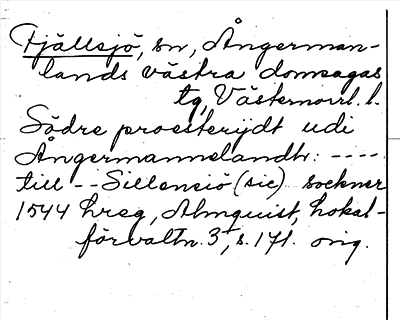 Fjällsjö, sn, Ångerman-
lands västra domsagas
tg, Västernorrl. l.
Södre proesterijdt udi
Ångermannelandh: ----
till -- Sillensiö (sic) sockner
1544 hreg, Almquist, Lokal-
förvaltn. 3, s. 171. orig.